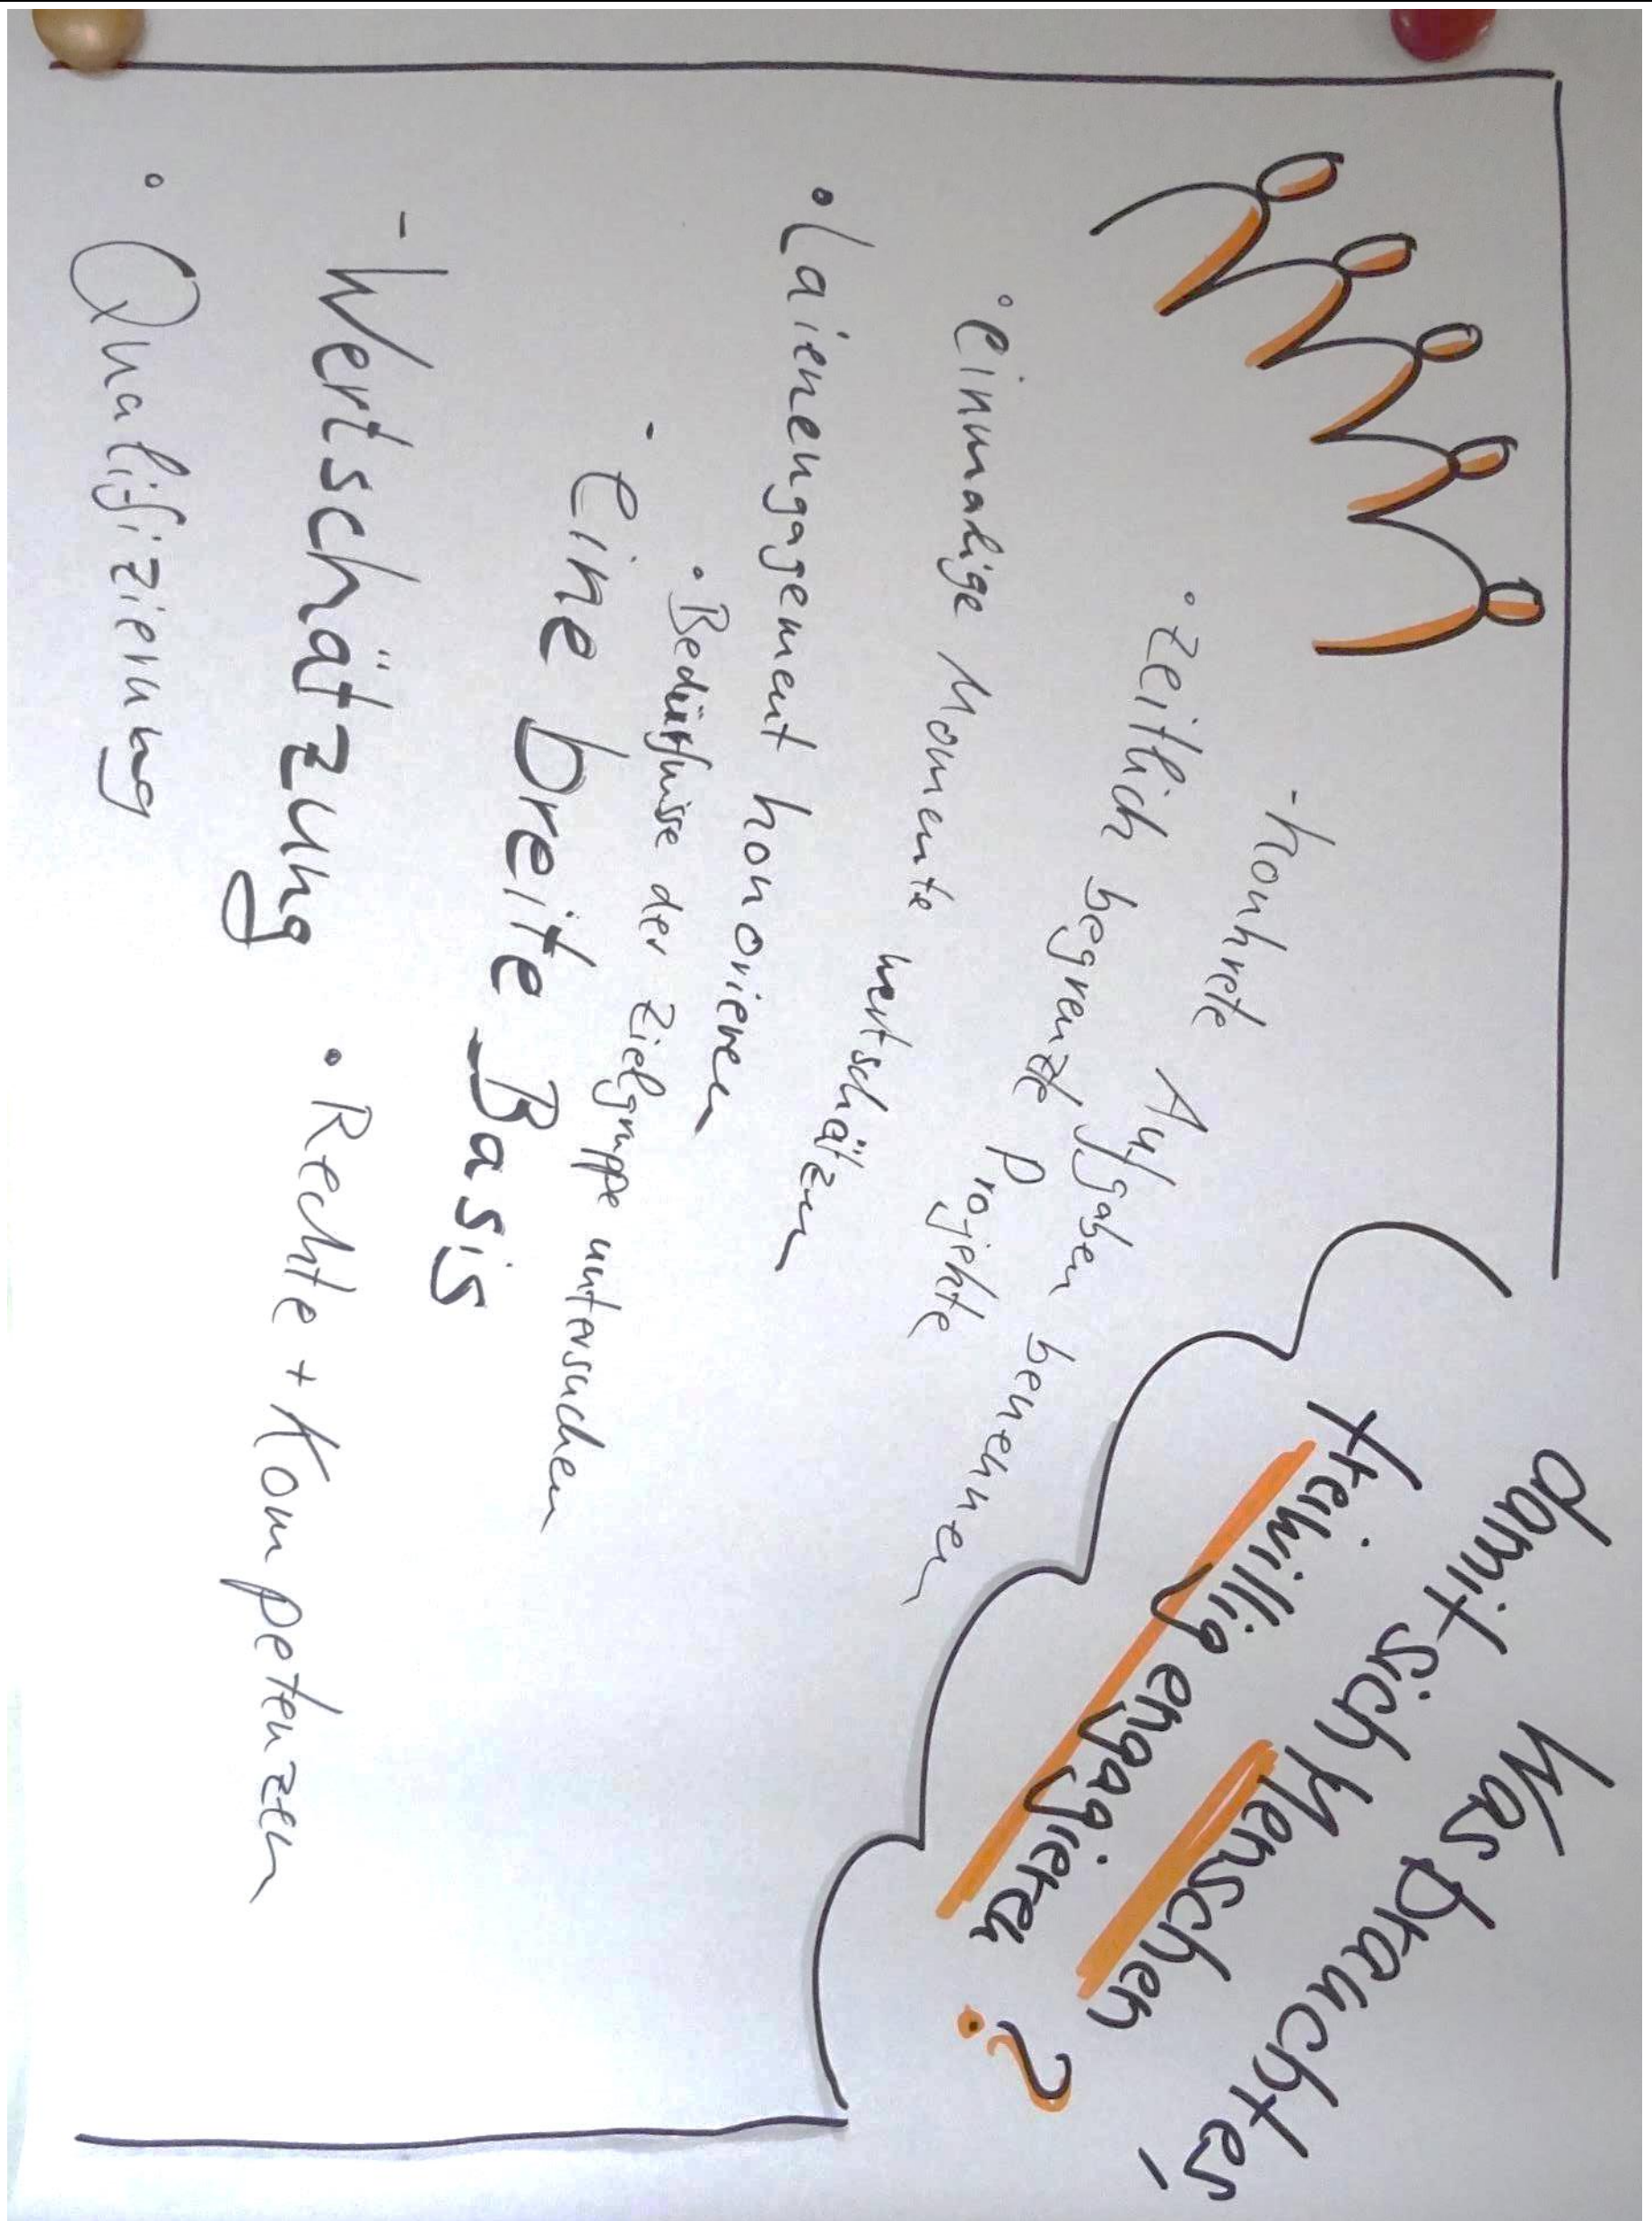 Was braucht es,
damit sich Menschen
freiwillig engagieren?
- konkrete Aufgaben benennen
• zeitlich begrenzte Projekte
• einmalige Momente wertschätzen
• Laienengagement honorieren
• Bedürfnisse der Zielgruppe untersuchen
- Eine breite Basis
- Wertschätzung
• Rechte + Kompetenzen
• Qualifizierung